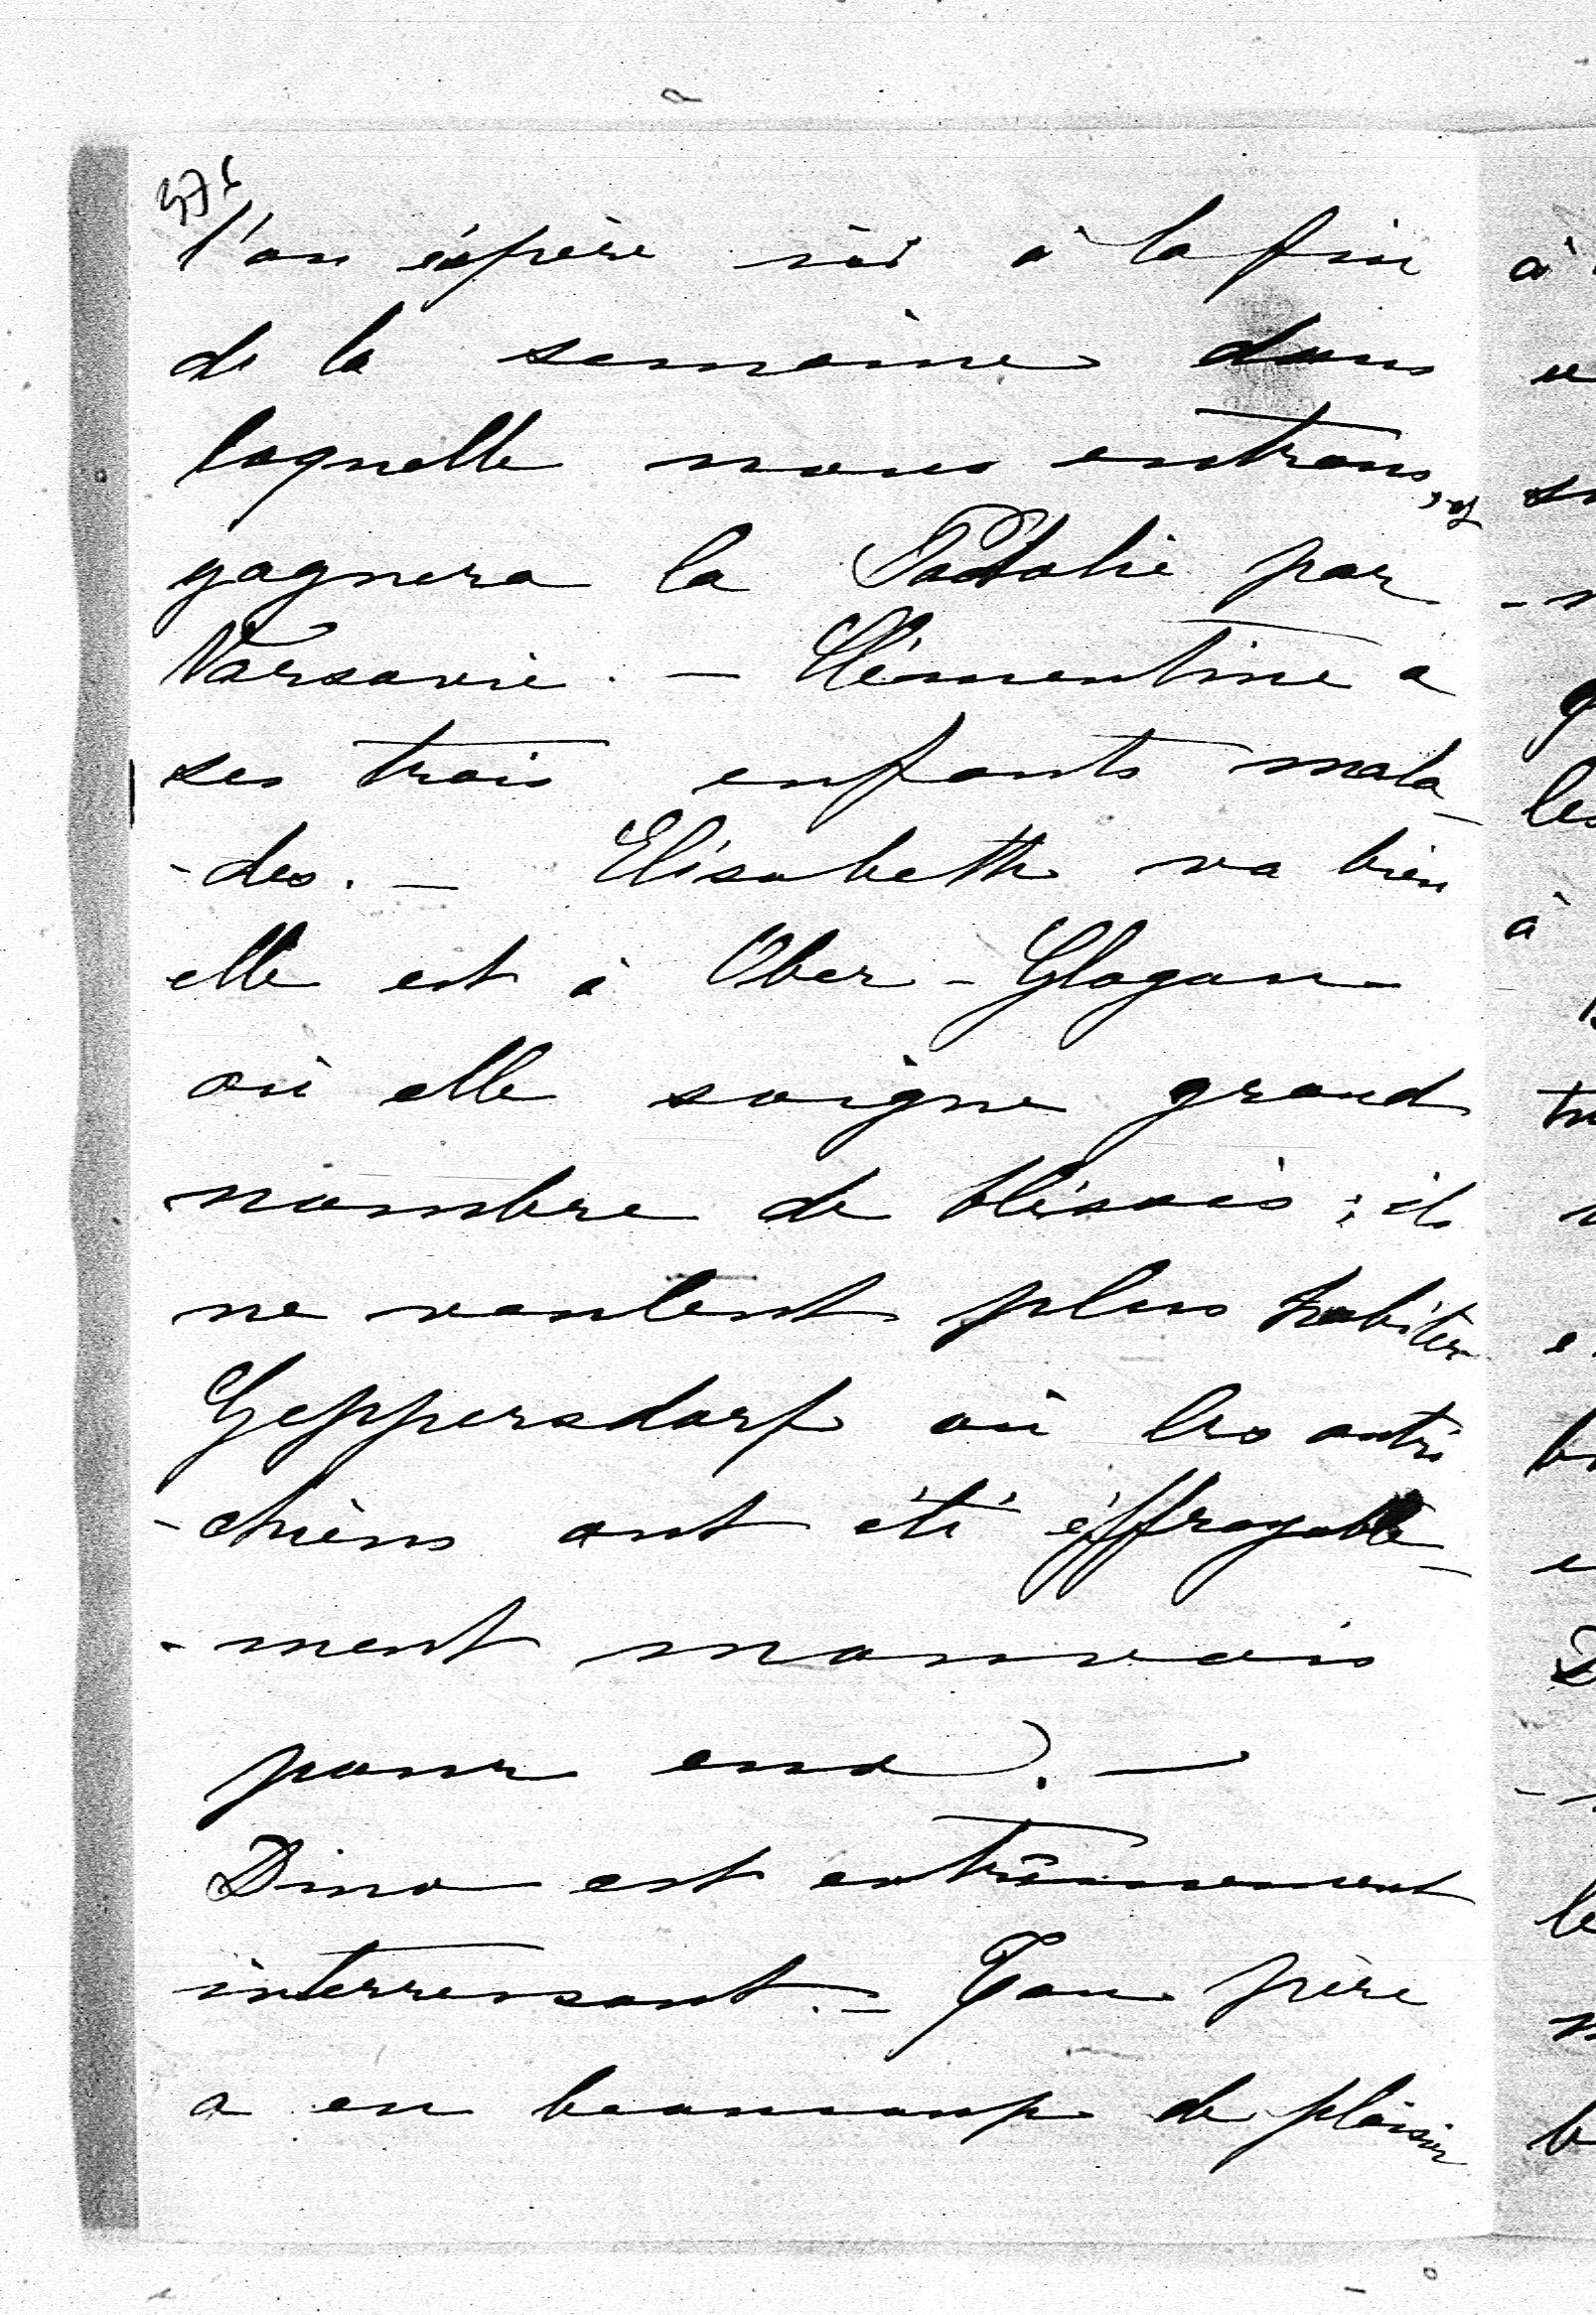 l'on éspère ici à la fin
de la semaine dans
laquelle nous entrons, et
gagnera la Podolie par
Varsovie. — Clémentine a
ses trois enfants mala-
-des. — Elisabeth va bien
elle est à Ober-Glogau
où elle soigne grand
nombre de blésses ; ils
ne veulent plus habiter
Geppersdorf où les autri
-chiens ont été éffroyable-
-ment mauvais
pour eux. —
Dino est extrêmement
interressant. — Ton père
a eu beaucoup de plaisir